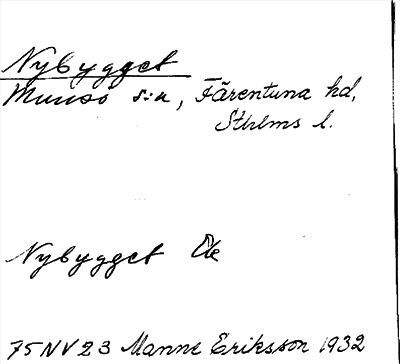 Nybygget
Munsö s:n, Färentuna hd,
Sthlms l.
Nybygget
75NV23 Manne Eriksson 1932